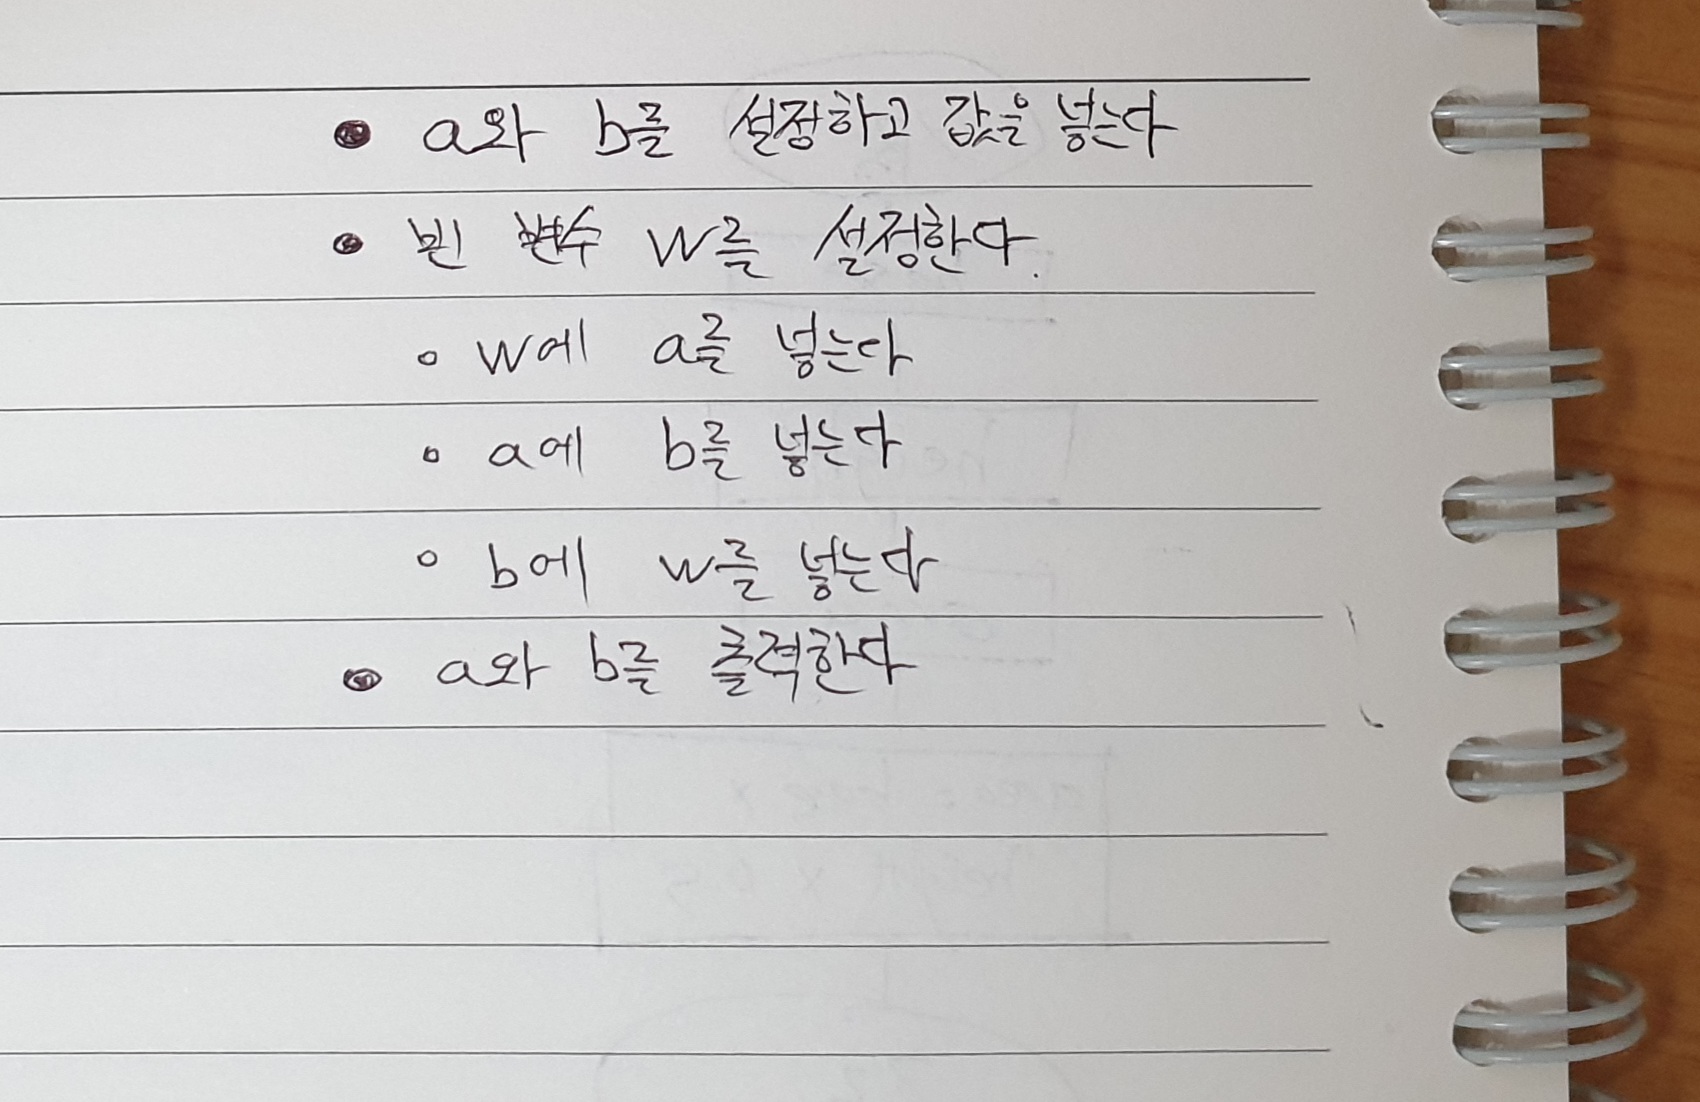 ● a와 b를 설정하고 값을 넣는다
● 빈 변수 w를 설정한다.
○ w에 a를 넣는다
○ a에 b를 넣는다
○ b에 w를 넣는다
● a와 b를 출력한다